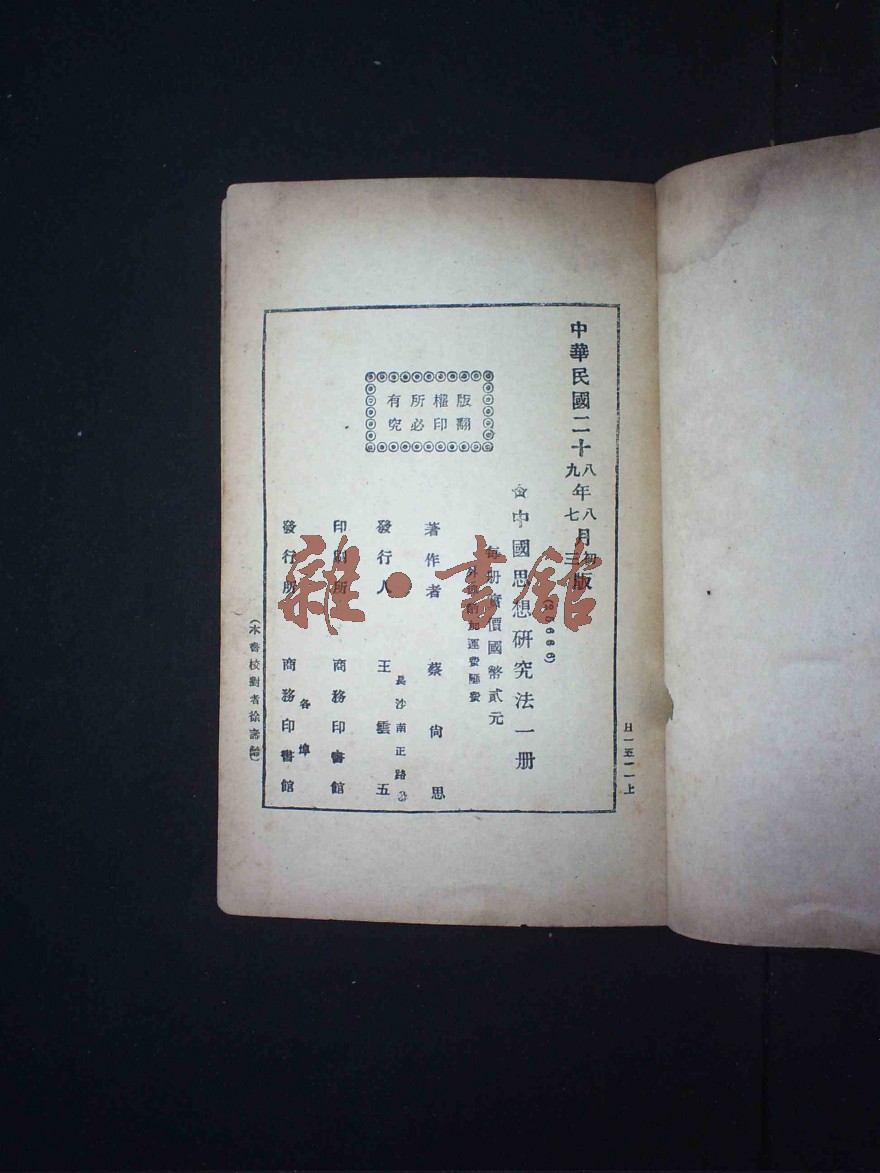 中華民國二十八年八月初版
九 七 三
版權所有
翻印必究
中國思想研究法一冊
(25686)
每冊實價國幣貳元
外埠酌加運費匯費
著作者 蔡尚思
發行人 王雲五
長沙南正路
印刷所 商務印書館
發行所 商務印書館
各埠
(本書校對者徐壽齡)
日一五一一上
雜·書館